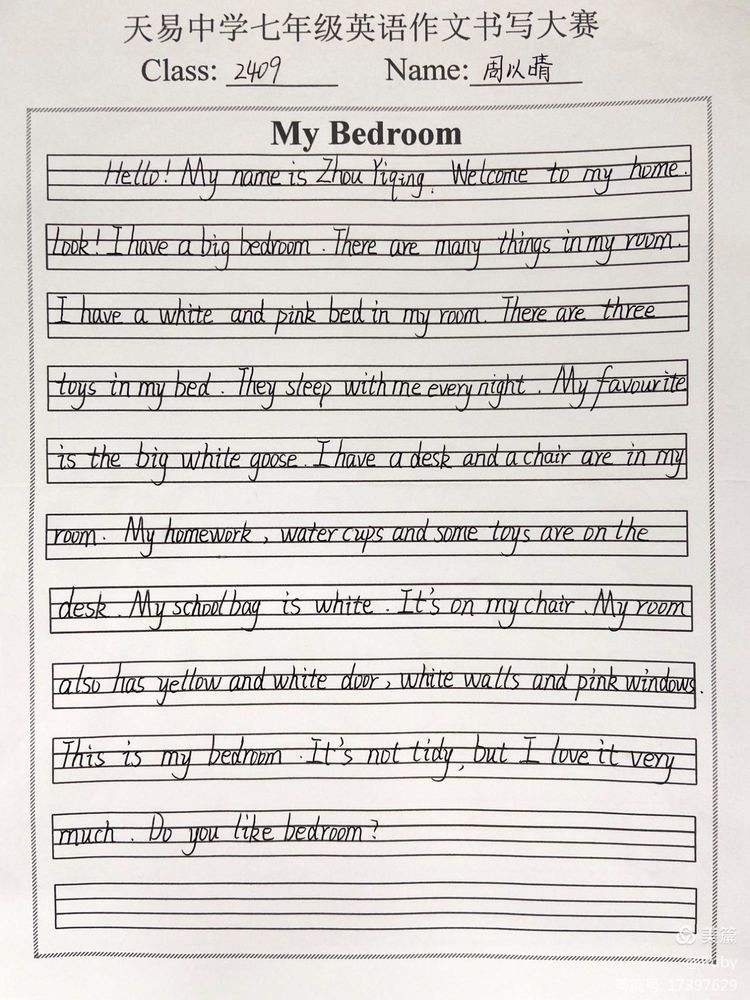 天易中学七年级英语作文书写大赛
Class: 2409 Name: 周以晴
My Bedroom
Hello! My name is Zhou Yiqing. Welcome to my home.
Look! I have a big bedroom. There are many things in my room.
I have a white and pink bed in my room. There are three
toys in my bed. They sleep with me every night. My favourite
is the big white goose. I have a desk and a chair are in my
room. My homework, water cups and some toys are on the
desk. My schoolbag is white. It's on my chair. My room
also has yellow and white door, white walls and pink windows.
This is my bedroom. It's not tidy, but I love it very
much. Do you like bedroom?
美篇
17397629